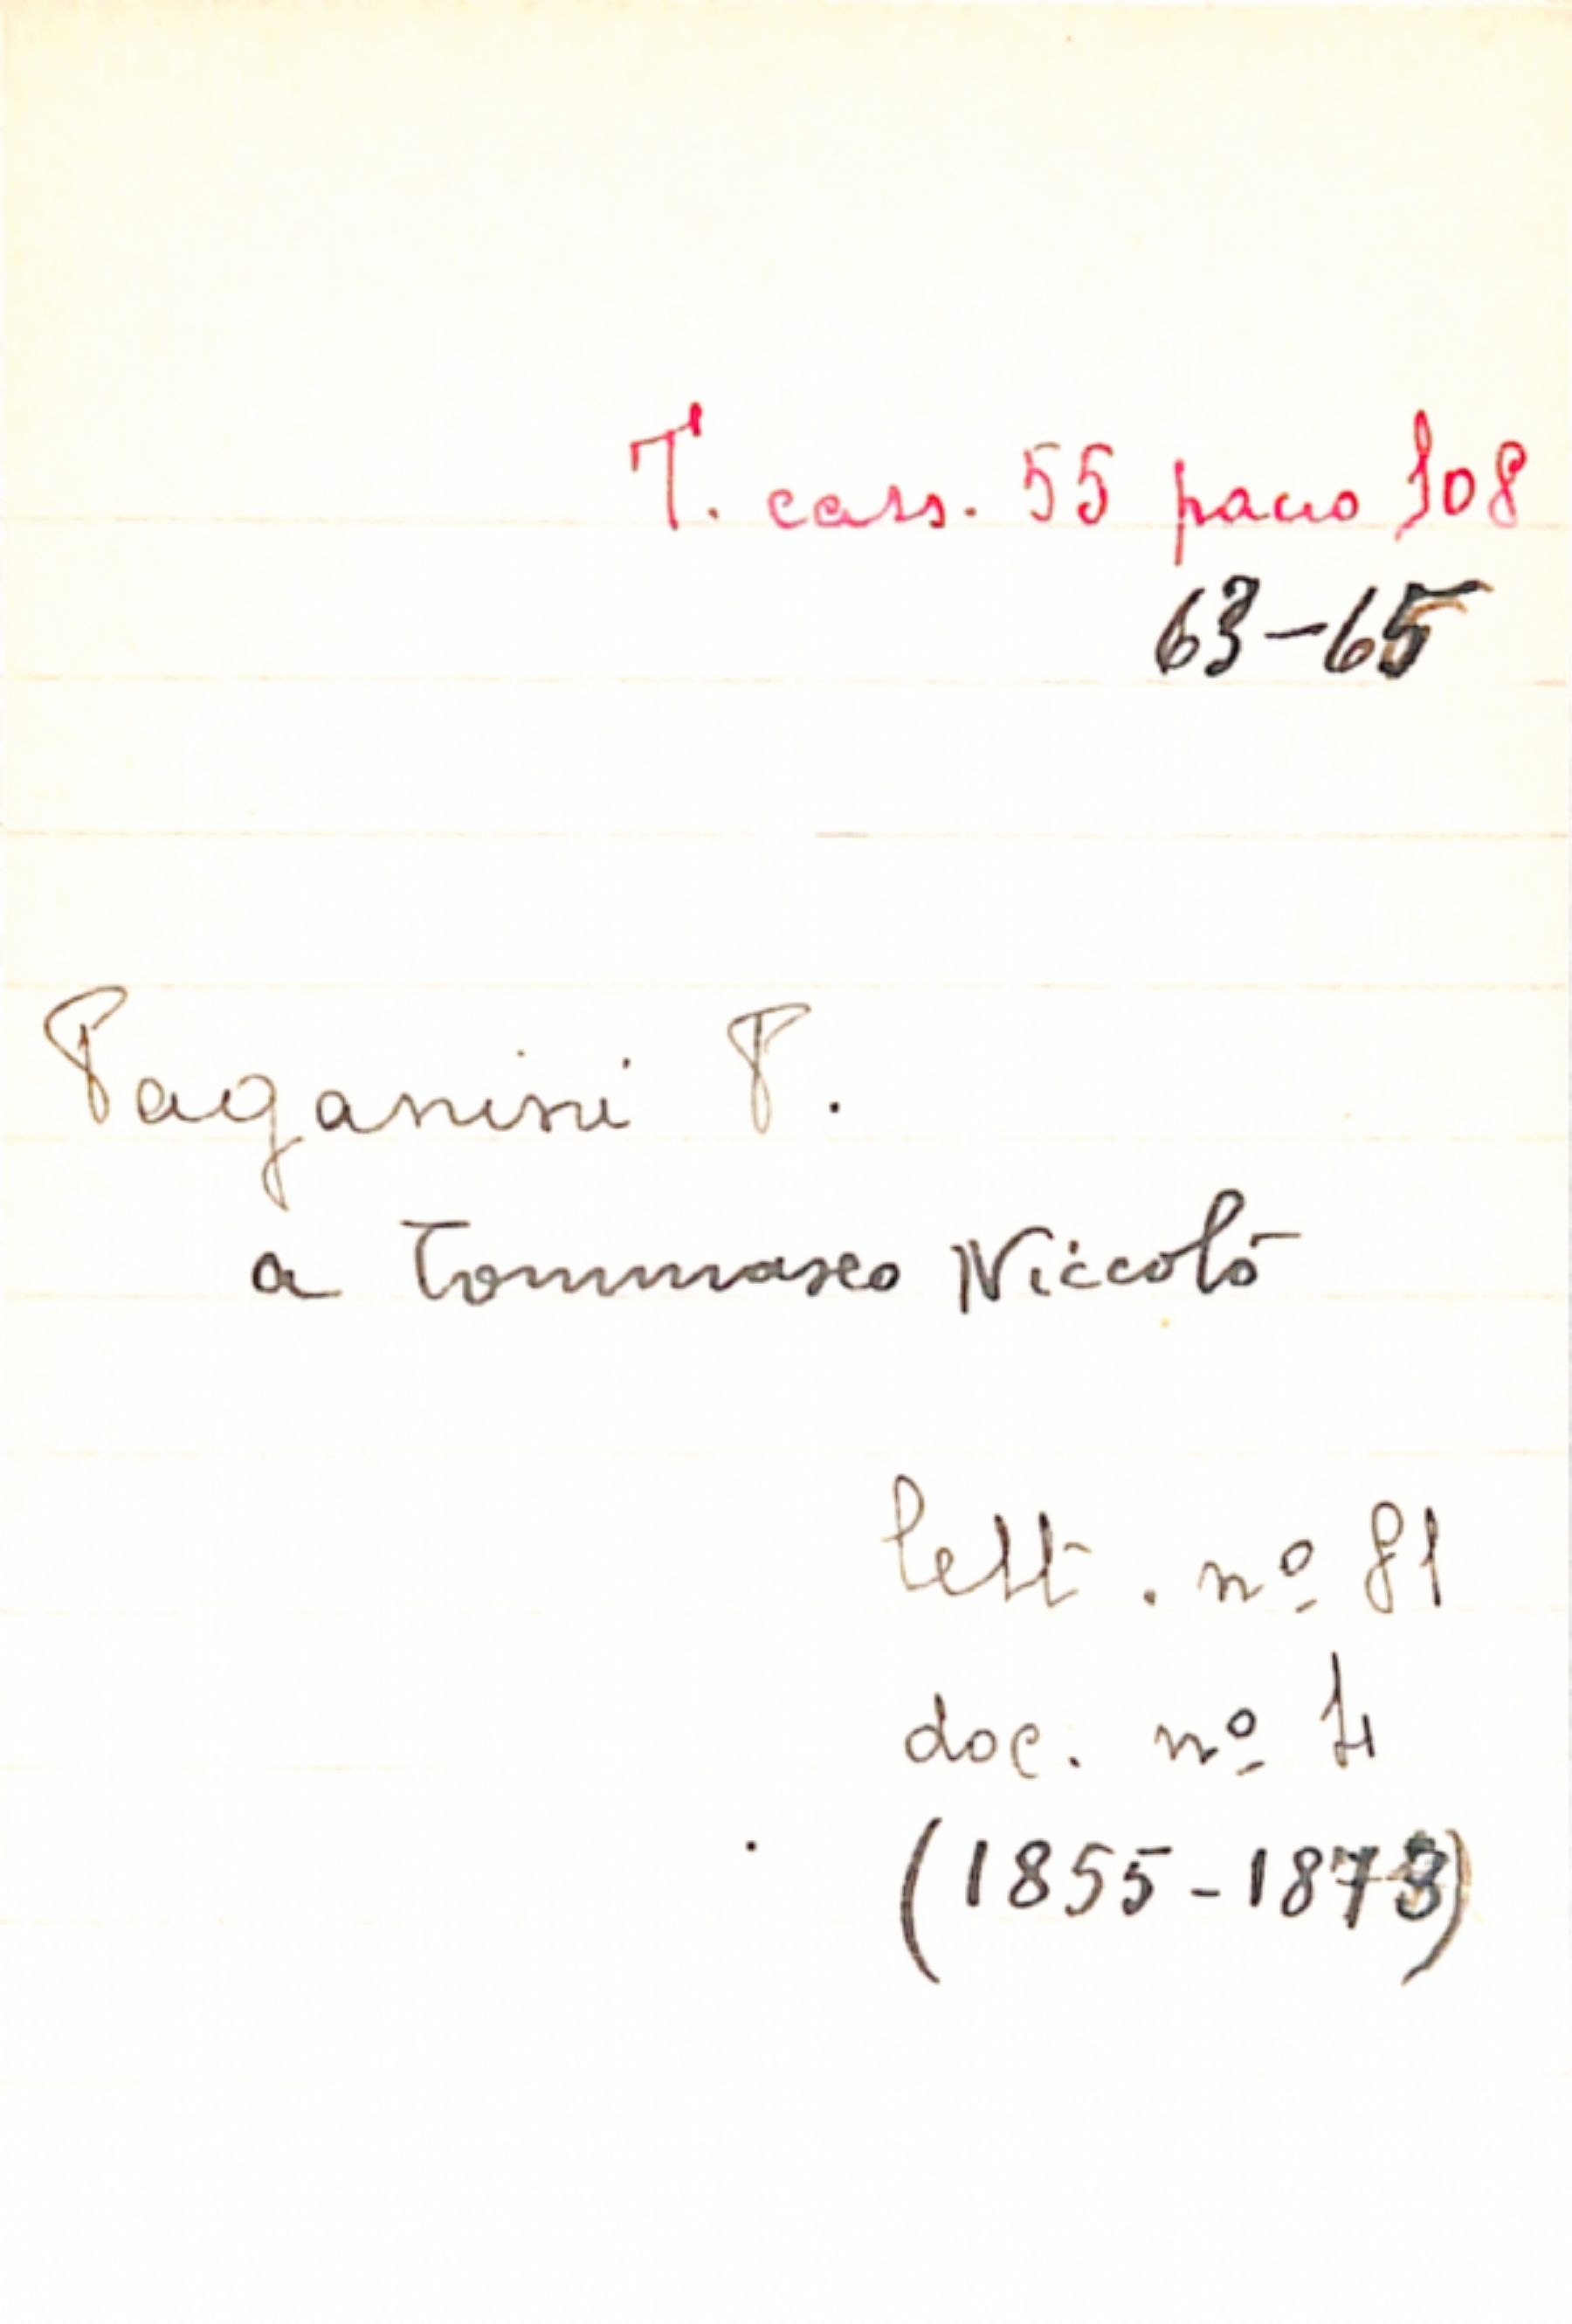 T. cass. 55 pacco 108
63-65
Paganini P.
a Tommaseo Niccolò
lett. nº 81
doc. nº 4
(1855-1873)